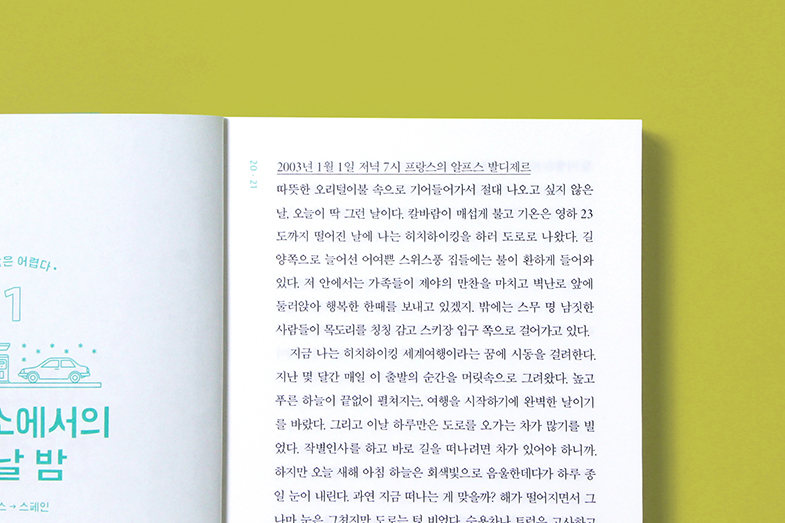 은 어렵다.
1
소에서의
날 밤
스 → 스페인
20 · 21
2003년 1월 1일 저녁 7시 프랑스의 알프스 발디제르
따뜻한 오리털이불 속으로 기어들어가서 절대 나오고 싶지 않은
날, 오늘이 딱 그런 날이다. 칼바람이 매섭게 불고 기온은 영하 23
도까지 떨어진 날에 나는 히치하이킹을 하러 도로로 나왔다. 길
양쪽으로 늘어선 어여쁜 스위스풍 집들에는 불이 환하게 들어와
있다. 저 안에서는 가족들이 제야의 만찬을 마치고 벽난로 앞에
둘러앉아 행복한 한때를 보내고 있겠지. 밖에는 스무 명 남짓한
사람들이 목도리를 칭칭 감고 스키장 입구 쪽으로 걸어가고 있다.
지금 나는 히치하이킹 세계여행이라는 꿈에 시동을 걸려한다.
지난 몇 달간 매일 이 출발의 순간을 머릿속으로 그려왔다. 높고
푸른 하늘이 끝없이 펼쳐지는, 여행을 시작하기에 완벽한 날이기
를 바랐다. 그리고 이날 하루만은 도로를 오가는 차가 많기를 빌
었다. 작별인사를 하고 바로 길을 떠나려면 차가 있어야 하니까.
하지만 오늘 새해 아침 하늘은 회색빛으로 음울한데다가 하루 종
일 눈이 내린다. 과연 지금 떠나는 게 맞을까? 해가 떨어지면서 그
나마 눈은 그쳤지만 도로는 텅 비었다. 승용차나 트럭은 고사하고